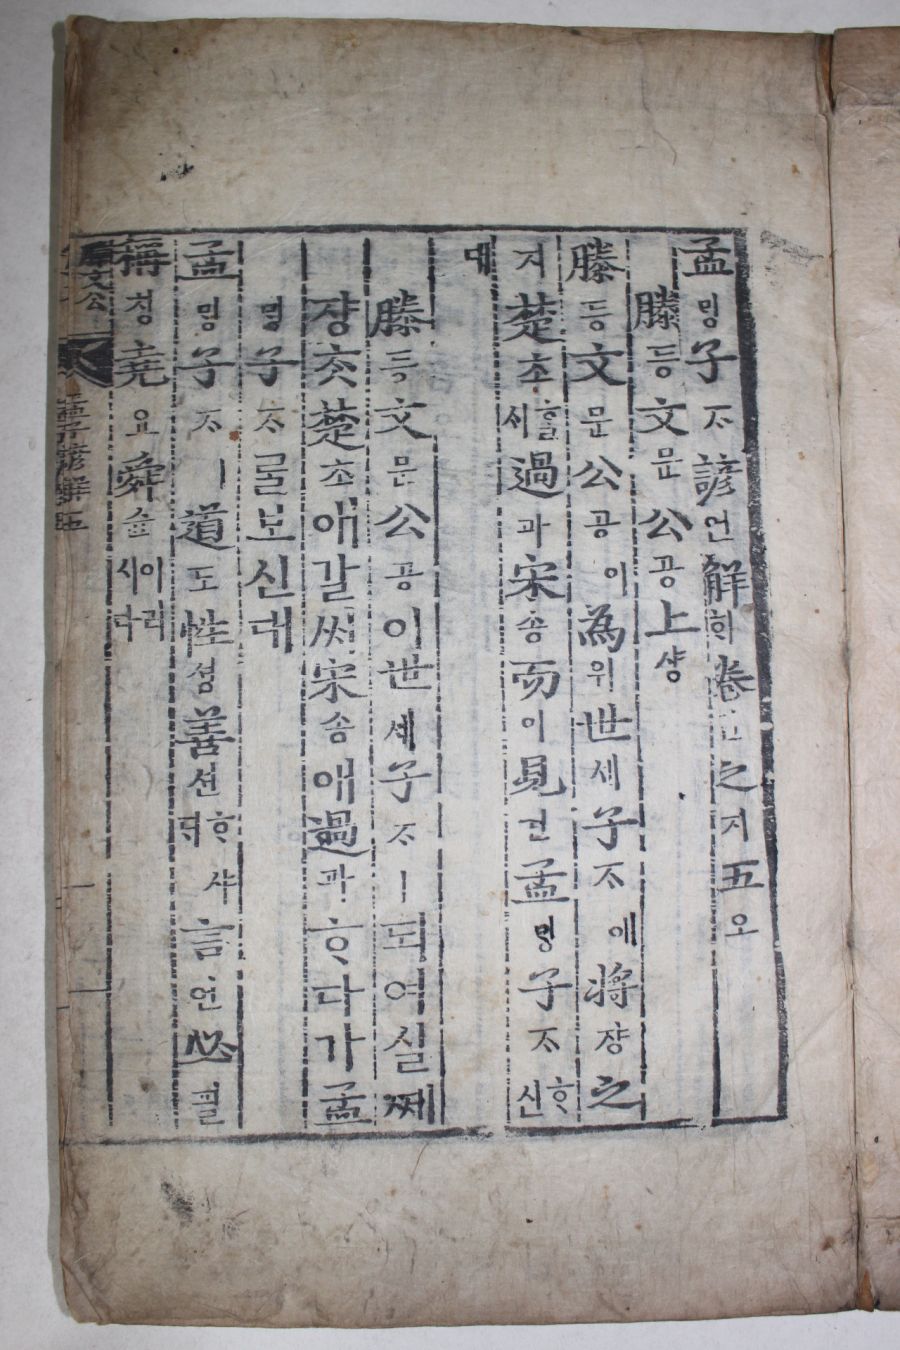 孟ᄆᆡᆼ子ᄌᆞ諺언解ᄒᆡ卷권之지五오
滕등文문公공上샹
滕등文문公공이爲위世셰子ᄌᆞ에將쟝之
지楚초ᄒᆞᆯ시過과宋송而이見견孟ᄆᆡᆼ子ᄌᆞᄒᆞ신
대
滕등文문公공이世셰子ᄌᆞㅣ되여실ᄶᅦ
쟝ᄎᆞᆺ楚초애갈ᄊᆡ宋송애過과ᄒᆞ다가孟
ᄆᆡᆼ子ᄌᆞᄅᆞᆯ보신대
孟ᄆᆡᆼ子ᄌᆞㅣ道도性셩善션ᄒᆞ샤ᄃᆡ言언必필
稱칭堯요舜슌이러시다
滕文公
孟子諺解五